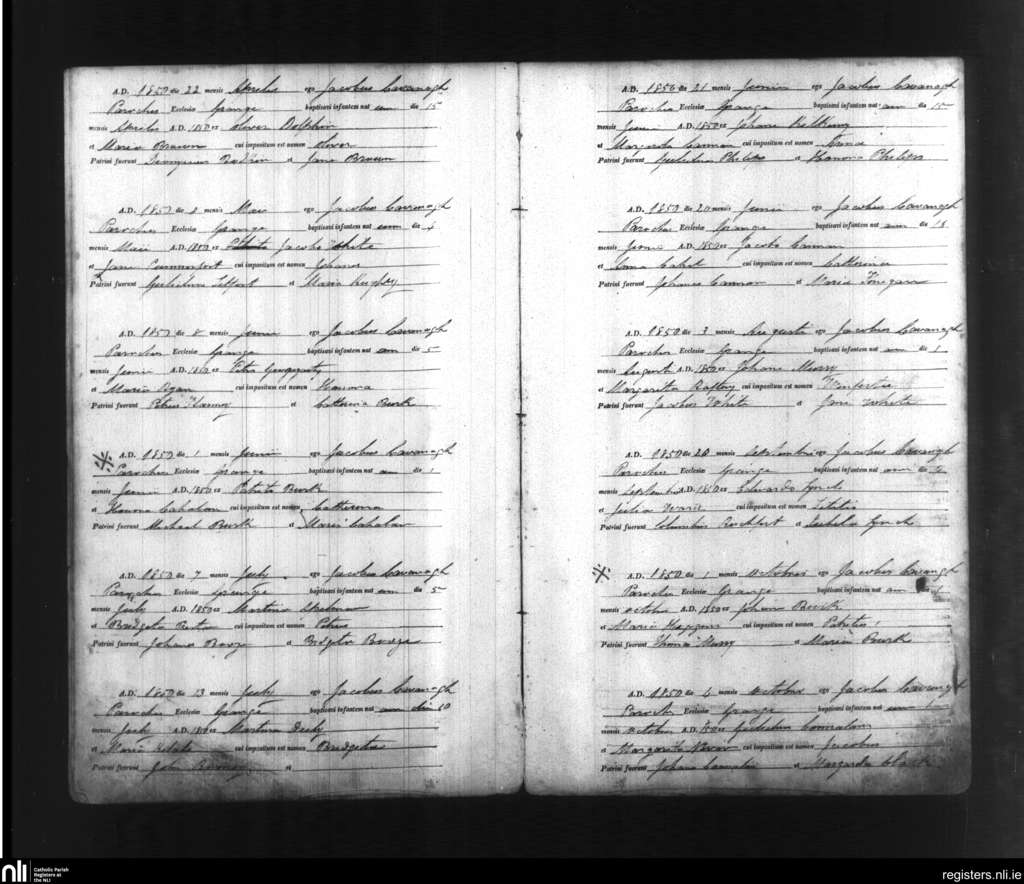 A.D. 1850 die 22 mensis Aprilis ego Jacobus Cavanagh
Parochus Ecclesiæ Grange baptisavi infantem nat um die 15
mensis Aprilis A.D. 1850 ex Oliver Dolphin
et Maria Browne cui impositum est nomen Oliver
Patrini fuerunt et Jane Browne
A.D. 1850 die 8 mensis Maii ego Jacobus Cavanagh
Parochus Ecclesiæ Grange baptisavi infantem nat um die 4
mensis Maii A.D. 1850 ex Jacobo White
et Jane cui impositum est nomen Johanes
Patrini fuerunt Gulielmus et Maria
A.D. 1850 die 8 mensis Junii ego Jacobus Cavanagh
Parochus Ecclesiæ Grange baptisavi infantem nat am die 5
mensis Junii A.D. 1850 ex Petro
et Maria Egan cui impositum est nomen Honora
Patrini fuerunt Petrus et Catherina Burk
A.D. 1850 die 1 mensis Junii ego Jacobus Cavanagh
Parochus Ecclesiæ Grange baptisavi infantem nat am die 1
mensis Junii A.D. 1850 ex Patritio Burk
et Honora Cahalan cui impositum est nomen Catherina
Patrini fuerunt Michael Burk et Maria Cahalan
A.D. 1850 die 7 mensis July ego Jacobus Cavanagh
Parochus Ecclesiæ Grange baptisavi infantem nat um die 5
mensis July A.D. 1850 ex Martino
et Bridgeta cui impositum est nomen Petrus
Patrini fuerunt Johanes et Bridgeta
A.D. 1850 die 13 mensis July ego Jacobus Cavanagh
Parochus Ecclesiæ Grange baptisavi infantem nat am die 10
mensis July A.D. 1850 ex Martino
et Maria cui impositum est nomen Bridgeta
Patrini fuerunt John et
A.D. 1850 die 21 mensis Junii ego Jacobus Cavanagh
Parochus Ecclesiæ Grange baptisavi infantem nat am die 15
mensis Junii A.D. 1850 ex Johane
et Margarita Cannan cui impositum est nomen Anna
Patrini fuerunt Gulielmus Philips et Honora Philips
A.D. 1850 die 20 mensis Junii ego Jacobus Cavanagh
Parochus Ecclesiæ Grange baptisavi infantem nat am die 18
mensis Junii A.D. 1850 ex Jacobo Cannan
et Anna cui impositum est nomen Catherina
Patrini fuerunt Johanes Cannan et Maria Finegan
A.D. 1850 die 3 mensis Augusti ego Jacobus Cavanagh
Parochus Ecclesiæ Grange baptisavi infantem nat am die 1
mensis Augusti A.D. 1850 ex Johane Murry
et Margarita Raftery cui impositum est nomen
Patrini fuerunt Jacobus White et Jane White
A.D. 1850 die 20 mensis Septembris ego Jacobus Cavanagh
Parochus Ecclesiæ Grange baptisavi infantem nat am die
mensis Septembris A.D. 1850 ex Edwardo Lynch
et Julia Ward cui impositum est nomen Letitia
Patrini fuerunt Columbus Rochfort et Isabella Lynch
A.D. 1850 die 1 mensis Octobris ego Jacobus Cavanagh
Parochus Ecclesiæ Grange baptisavi infantem nat um die
mensis Octobris A.D. 1850 ex Johane Burk
et Maria cui impositum est nomen
Patrini fuerunt Thomas Murry et Maria Burk
A.D. 1850 die 6 mensis Octobris ego Jacobus Cavanagh
Parochus Ecclesiæ Grange baptisavi infantem nat um die
mensis Octobris A.D. 1850 ex Gulielmo
et Margarita cui impositum est nomen Jacobus
Patrini fuerunt Johanes et Margarita Clark
nli
Catholic Parish
Registers at
the NLI
registers.nli.ie